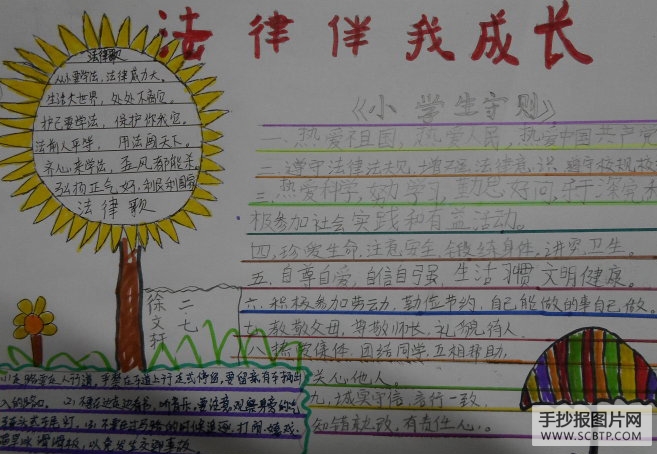 法律伴我成长
法律歌
从小要学法，法律威力大。
生活大世界，处处不离它。
护己要学法，保护你我它。
法前人平等，用法闯天下。
齐心来学法，歪风都能杀。
弘扬正气好，利民利国家
法律歌
《小学生守则》
一、热爱祖国，热爱人民，热爱中国共产党
二、遵守法律法规，增强法律意识。遵守校规校
三、热爱科学，努力学习，勤思好问，乐于探究，积
极参加社会实践和有益活动。
四、珍爱生命，注意安全，锻炼身体，讲究卫生。
五、自尊自爱，自信自强，生活习惯文明健康。
六、积极参加劳动，勤俭节约，自己能做的事自己做。
七、孝敬父母，尊敬师长，礼貌待人。
八、热爱集体，团结同学，互相帮助，
关心他人。
九、诚实守信，言行一致，
知错就改，有责任心。
二七
徐文
行道，
入的路口。(2)不要在边走边看书、听音乐，要注意观察身旁的
(3)不要在过马路的时候追逐、打闹、嬉戏、
滑板，以免发生交通事故。
手抄报图片网
WWW.SCBTP.COM